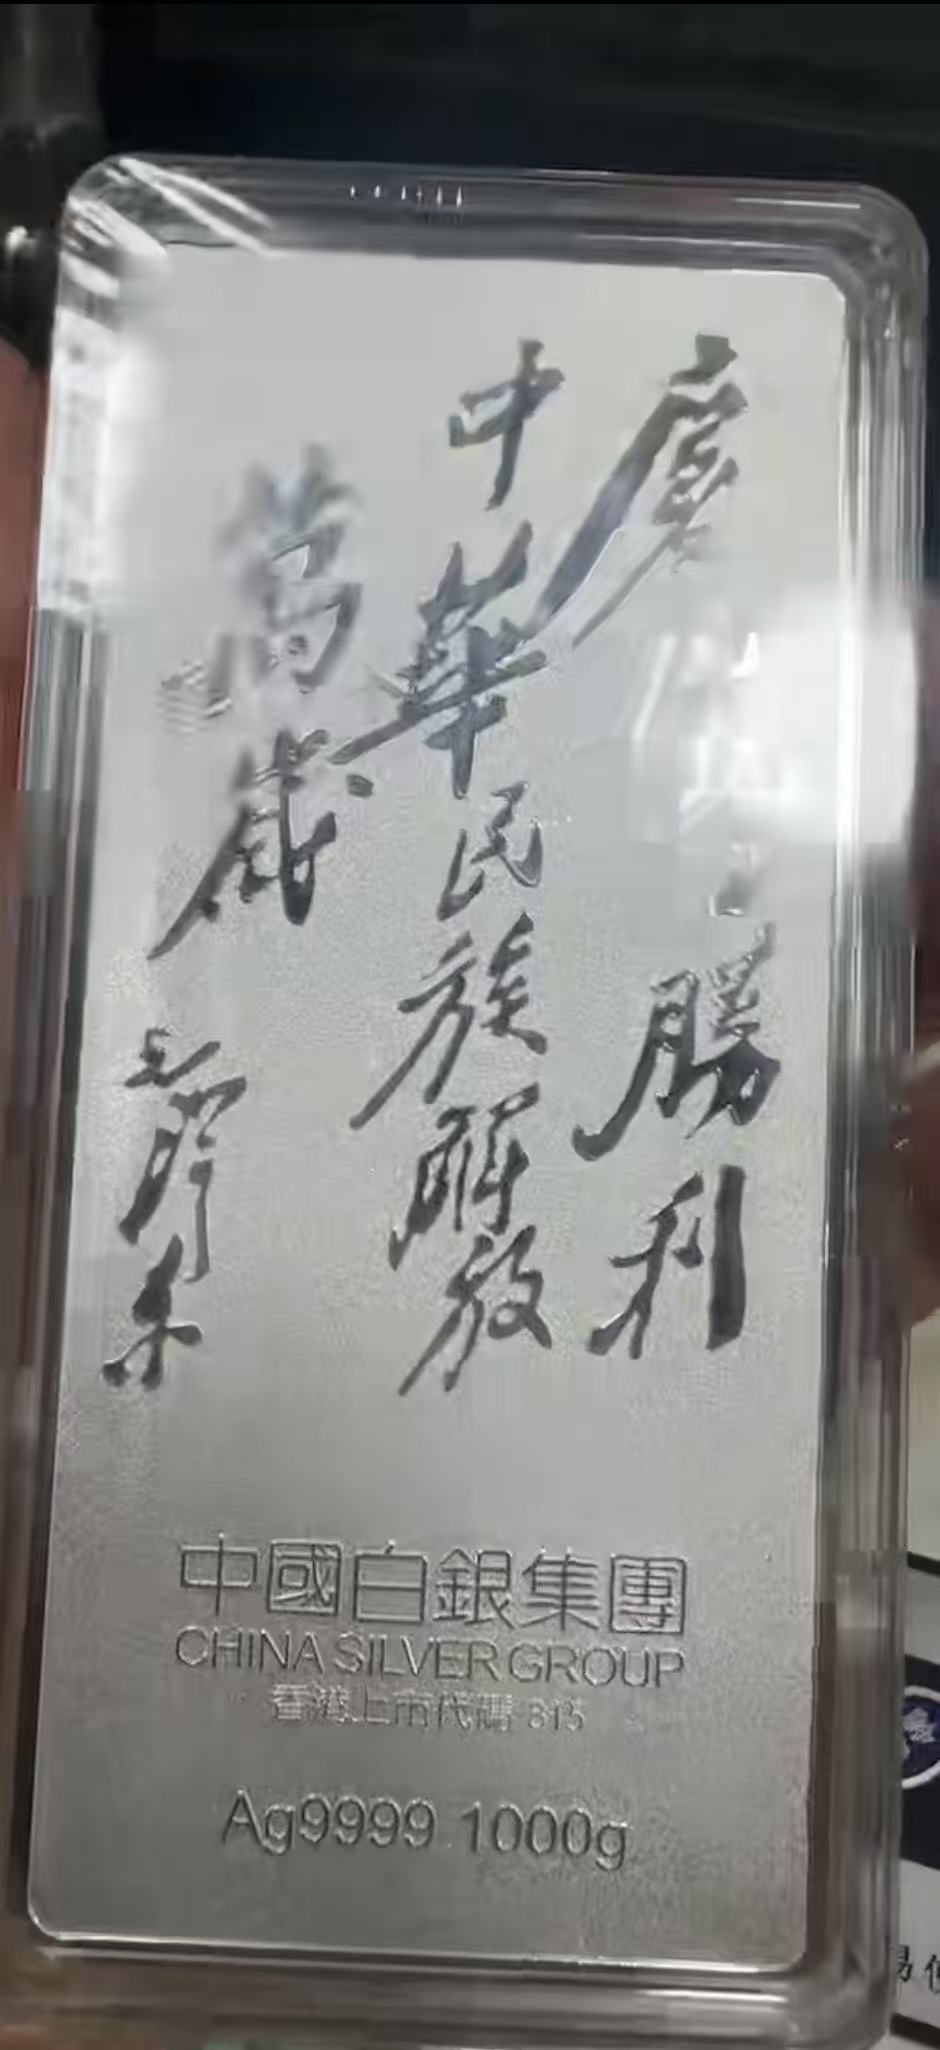 慶勝利
中華民族解放
萬歲
毛澤東
中國白銀集團
CHINA SILVER GROUP
香港上市代碼 815
Ag9999 1000g